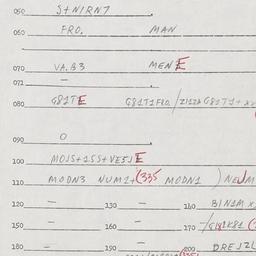 050 S+N1RN7
060 FRO. MAN
070 VA.B3 MENE
071 —
080 G81TE G81T1FRO. /Z1
090 0
100 MOJS+1SS+VESJE
110 MODN3 NUM1+(335 MODN1 ) NEUM
120 — 130 — 160 BIN1M
150 — 160 — 170
180 — 190 — 200 DRESZL